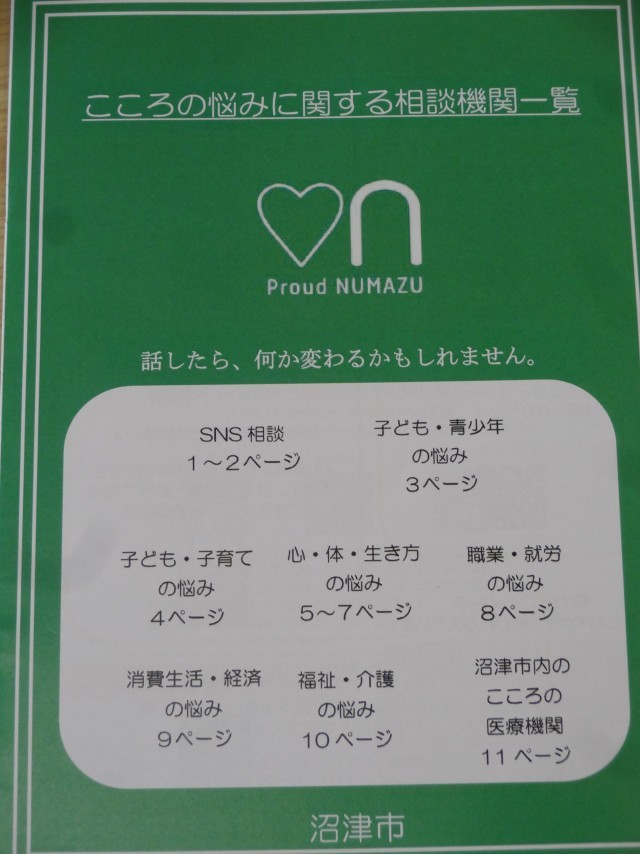 こころの悩みに関する相談機関一覧
Proud NUMAZU
話したら、何か変わるかもしれません。
SNS 相談
１～２ページ
子ども・青少年
の悩み
３ページ
子ども・子育て
の悩み
４ページ
心・体・生き方
の悩み
５～７ページ
職業・就労
の悩み
８ページ
消費生活・経済
の悩み
９ページ
福祉・介護
の悩み
10 ページ
沼津市内の
こころの
医療機関
11 ページ
沼津市